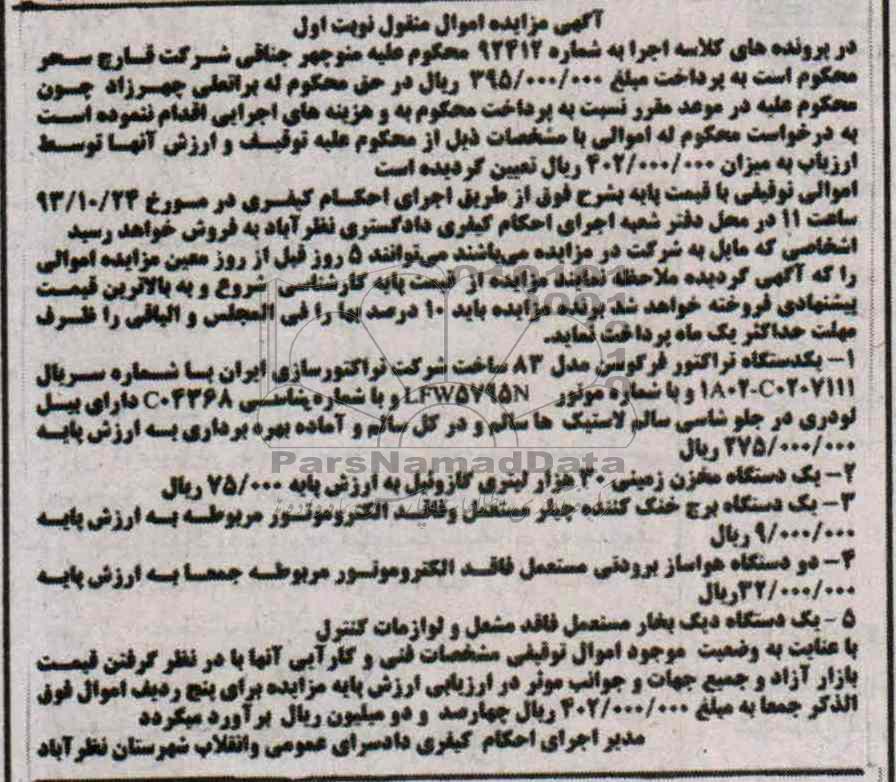 آگهی مزایده اموال منقول نوبت اول
در پرونده های کلاسه اجرا به شماره ۹۲۴۱۲ محکوم علیه منوچهر جناقی شرکت قارچ سحر
محکوم است به پرداخت مبلغ ۳۹۵/۰۰۰/۰۰۰ ریال در حق محکوم له براتعلی چهرزاد چون
محکوم علیه در موعد مقرر نسبت به پرداخت محکوم به و هزینه های اجرایی اقدام ننموده است
به درخواست محکوم له اموالی با مشخصات ذیل از محکوم علیه توقیف و ارزش آنها توسط
ارزیاب به میزان ۴۰۲/۰۰۰/۰۰۰ ریال تعیین گردیده است
اموالی توقیفی با قیمت پایه بشرح فوق از طریق اجرای احکام کیفری در مورخ ۹۳/۱۰/۲۴
ساعت ۱۱ در محل دفتر شعبه اجرای احکام کیفری دادگستری نظر آباد به فروش خواهد رسید
اشخاصی که مایل به شرکت در مزایده می‌باشند می‌توانند ۵ روز قبل از روز معین مزایده اموالی
را که آگهی گردیده ملاحظه نمایند مزایده از قیمت پایه کارشناسی شروع و به بالاترین قیمت
پیشنهادی فروخته خواهد شد برنده مزایده باید ۱۰ درصد بها را فی المجلس و الباقی را ظرف
مهلت حداکثر یک ماه پرداخت نماید.
۱- یکدستگاه تراکتور فرگوسن مدل ۸۳ ساخت شرکت تراکتورسازی ایران با شماره سریال
۱A۰۲-C۰۲۰۷۱۱۱ و با شماره موتور LFW۵۷۹۵N و با شماره شاسی C۰۴۳۶۸ دارای بیل
لودری در جلو شاسی سالم لاستیک ها سالم و در کل سالم و آماده بهره برداری به ارزش پایه
۲۷۵/۰۰۰/۰۰۰ ریال
ParsNamadData
۲- یک دستگاه مخزن زمینی ۳۰ هزار لیتری گازوئیل به ارزش پایه ۷۵/۰۰۰ ریال
۳- یک دستگاه برج خنک کننده چیلر مستعمل وفاقد الکتروموتور مربوطه به ارزش پایه
۹/۰۰۰/۰۰۰ ریال
۴- دو دستگاه هواساز برودتی مستعمل فاقد الکتروموتور مربوطه جمعا به ارزش پایه
۳۲/۰۰۰/۰۰۰ریال
۵ - یک دستگاه دیگ بخار مستعمل فاقد مشعل و لوازمات کنترل
با عنایت به وضعیت موجود اموال توقیفی مشخصات فنی و کارآیی آنها با در نظر گرفتن قیمت
بازار آزاد و جمیع جهات و جوانب موثر در ارزیابی ارزش پایه مزایده برای پنج ردیف اموال فوق
الذکر جمعا به مبلغ ۴۰۲/۰۰۰/۰۰۰ ریال چهارصد و دو میلیون ریال برآورد میگردد
مدیر اجرای احکام کیفری دادسرای عمومی وانقلاب شهرستان نظرآباد